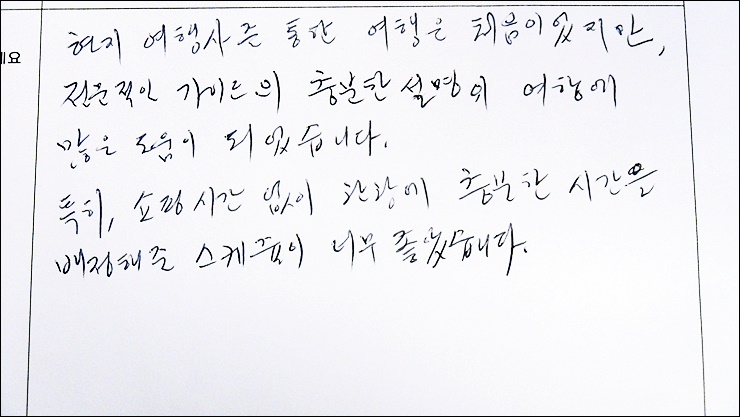 현지 여행사를 통한 여행은 처음이었지만,
전문적인 가이드의 충분한 설명이 여행에
많은 도움이 되었습니다.
특히, 쇼핑시간 없이 관광에 충분한 시간을
배정해준 스케줄이 너무 좋았습니다.
세요